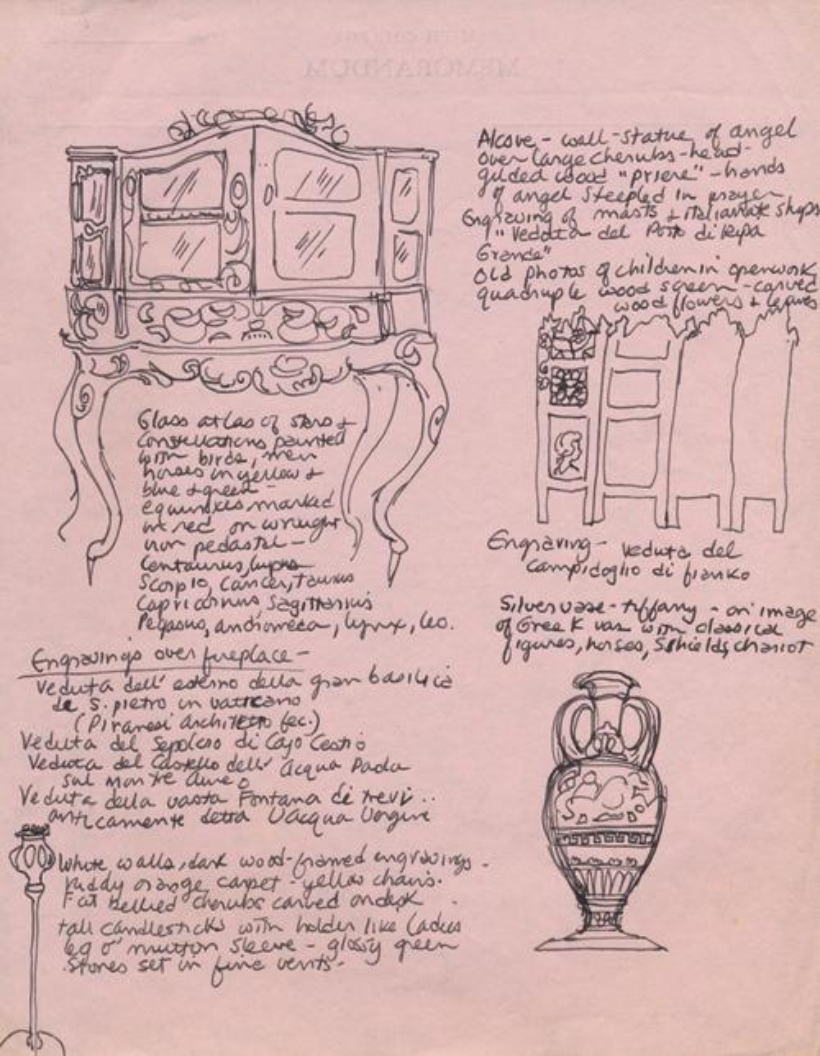 MEMORANDUM
Alcove - wall-statue of angel
over large cherubs-head-
gilded wood "priere" - hands
of angel steepled in prayer
Engraving of masts + italianate ships
"Veduta del Porto di Ripa
Grande"
Old photos of children in openwork
quadruple wood screen - carved
wood flowers & leaves
Glass atlas of stars +
constellations painted
with birds, men
horses in yellow +
blue + green -
equinoxes marked
in red on wrought
iron pedastal -
Centaurus, lupus
Scorpio, Cancer, Taurus
Capricornus Sagittarius
Pegasus, andromeca, lynx, leo.
Engraving - veduta del
campidoglio di fianko
Silver vase - tiffany - on image
of Greek vase with classical
figures, horses, shields, chariot
Engravings over fireplace -
Veduta dell' esterno della gran basilica
de S. pietro in vaticano
(Piranesi architetto fec.)
Veduta del Sepolcro di Cajo Cestio
Veduta del Castello dell' Acqua Paola
sul monte Aureo
Veduta della vasta Fontana di trevi ..
anticamente detta l'acqua Vergine
White walls, dark wood-framed engravings -
ruddy orange carpet - yellow chairs.
Fat bellied cherubs carved on desk
tall candlesticks with holder like ladies
leg o' mutton sleeve - glossy green
stones set in fine vents -